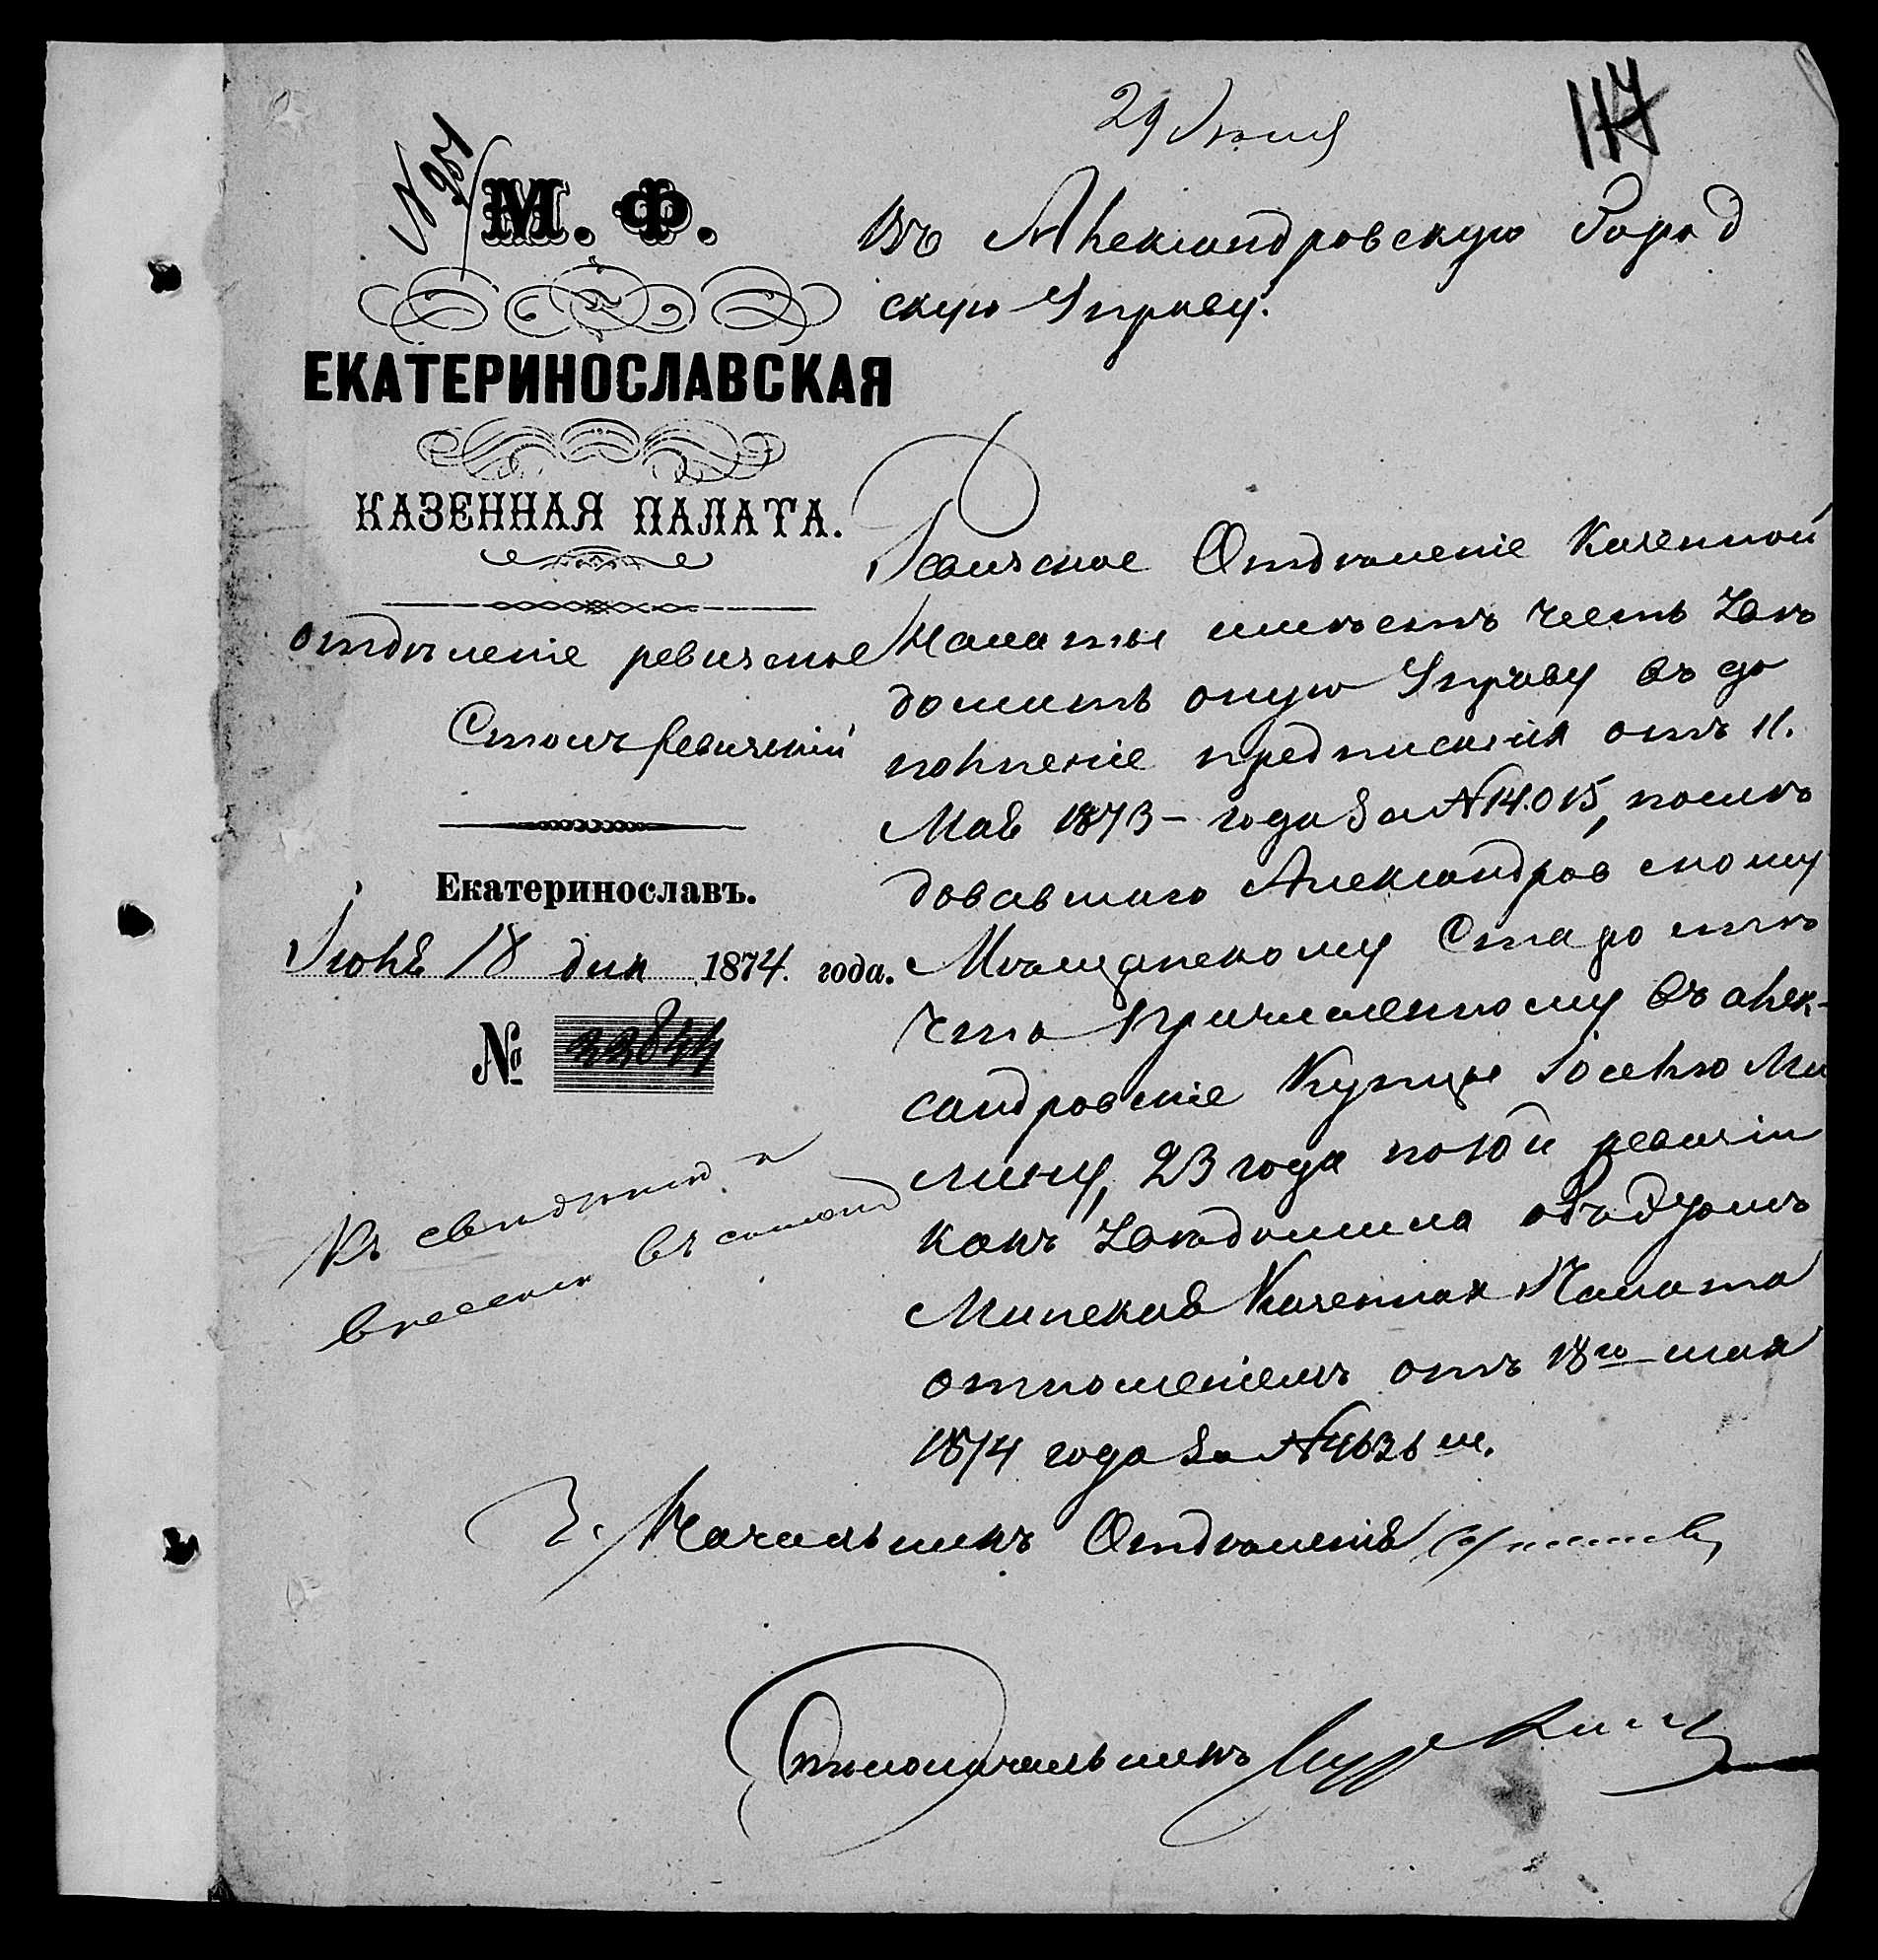 29 Июня
117
№ 951
М. Ф.
ЕКАТЕРИНОСЛАВСКАЯ
КАЗЕННАЯ ПАЛАТА.
отдѣленіе ревизское
Столъ ревизскій
Екатеринославъ.
Іюня 18 дня 1874. года.
№ 33844
Къ свѣденію и
внесенію въ
Въ Александровскую Город
скую Управу.
Ревизское Отдѣленіе Казенной
Палаты имѣетъ честь Увѣ
домить оную Управу въ до
полненіе предписанія отъ 11.
Мая 1873 – года за № 14.015, послѣ
довавшаго Александровскому
Мѣщанскому Старостѣ
что Причисленному въ Алек-
сандровскіе Купцы Іоселю Ми
лину, 23 года по 10й ревизіи
какъ Увѣдомила
Минская Казенная Палата
отношеніемъ отъ 18го мая
1874 года за №
Начальникъ Отдѣленія
Столоначальникъ